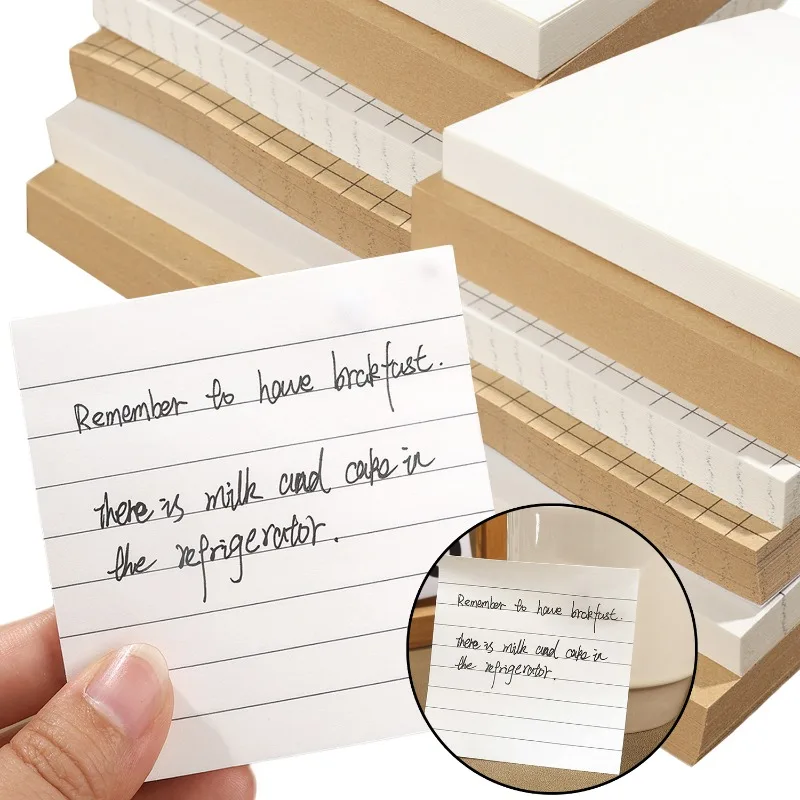 Remember to have brakfast.
there is milk and cake in
the refrigerator.
Remember to have brakfast.
there is milk and cake in
the refrigerator.